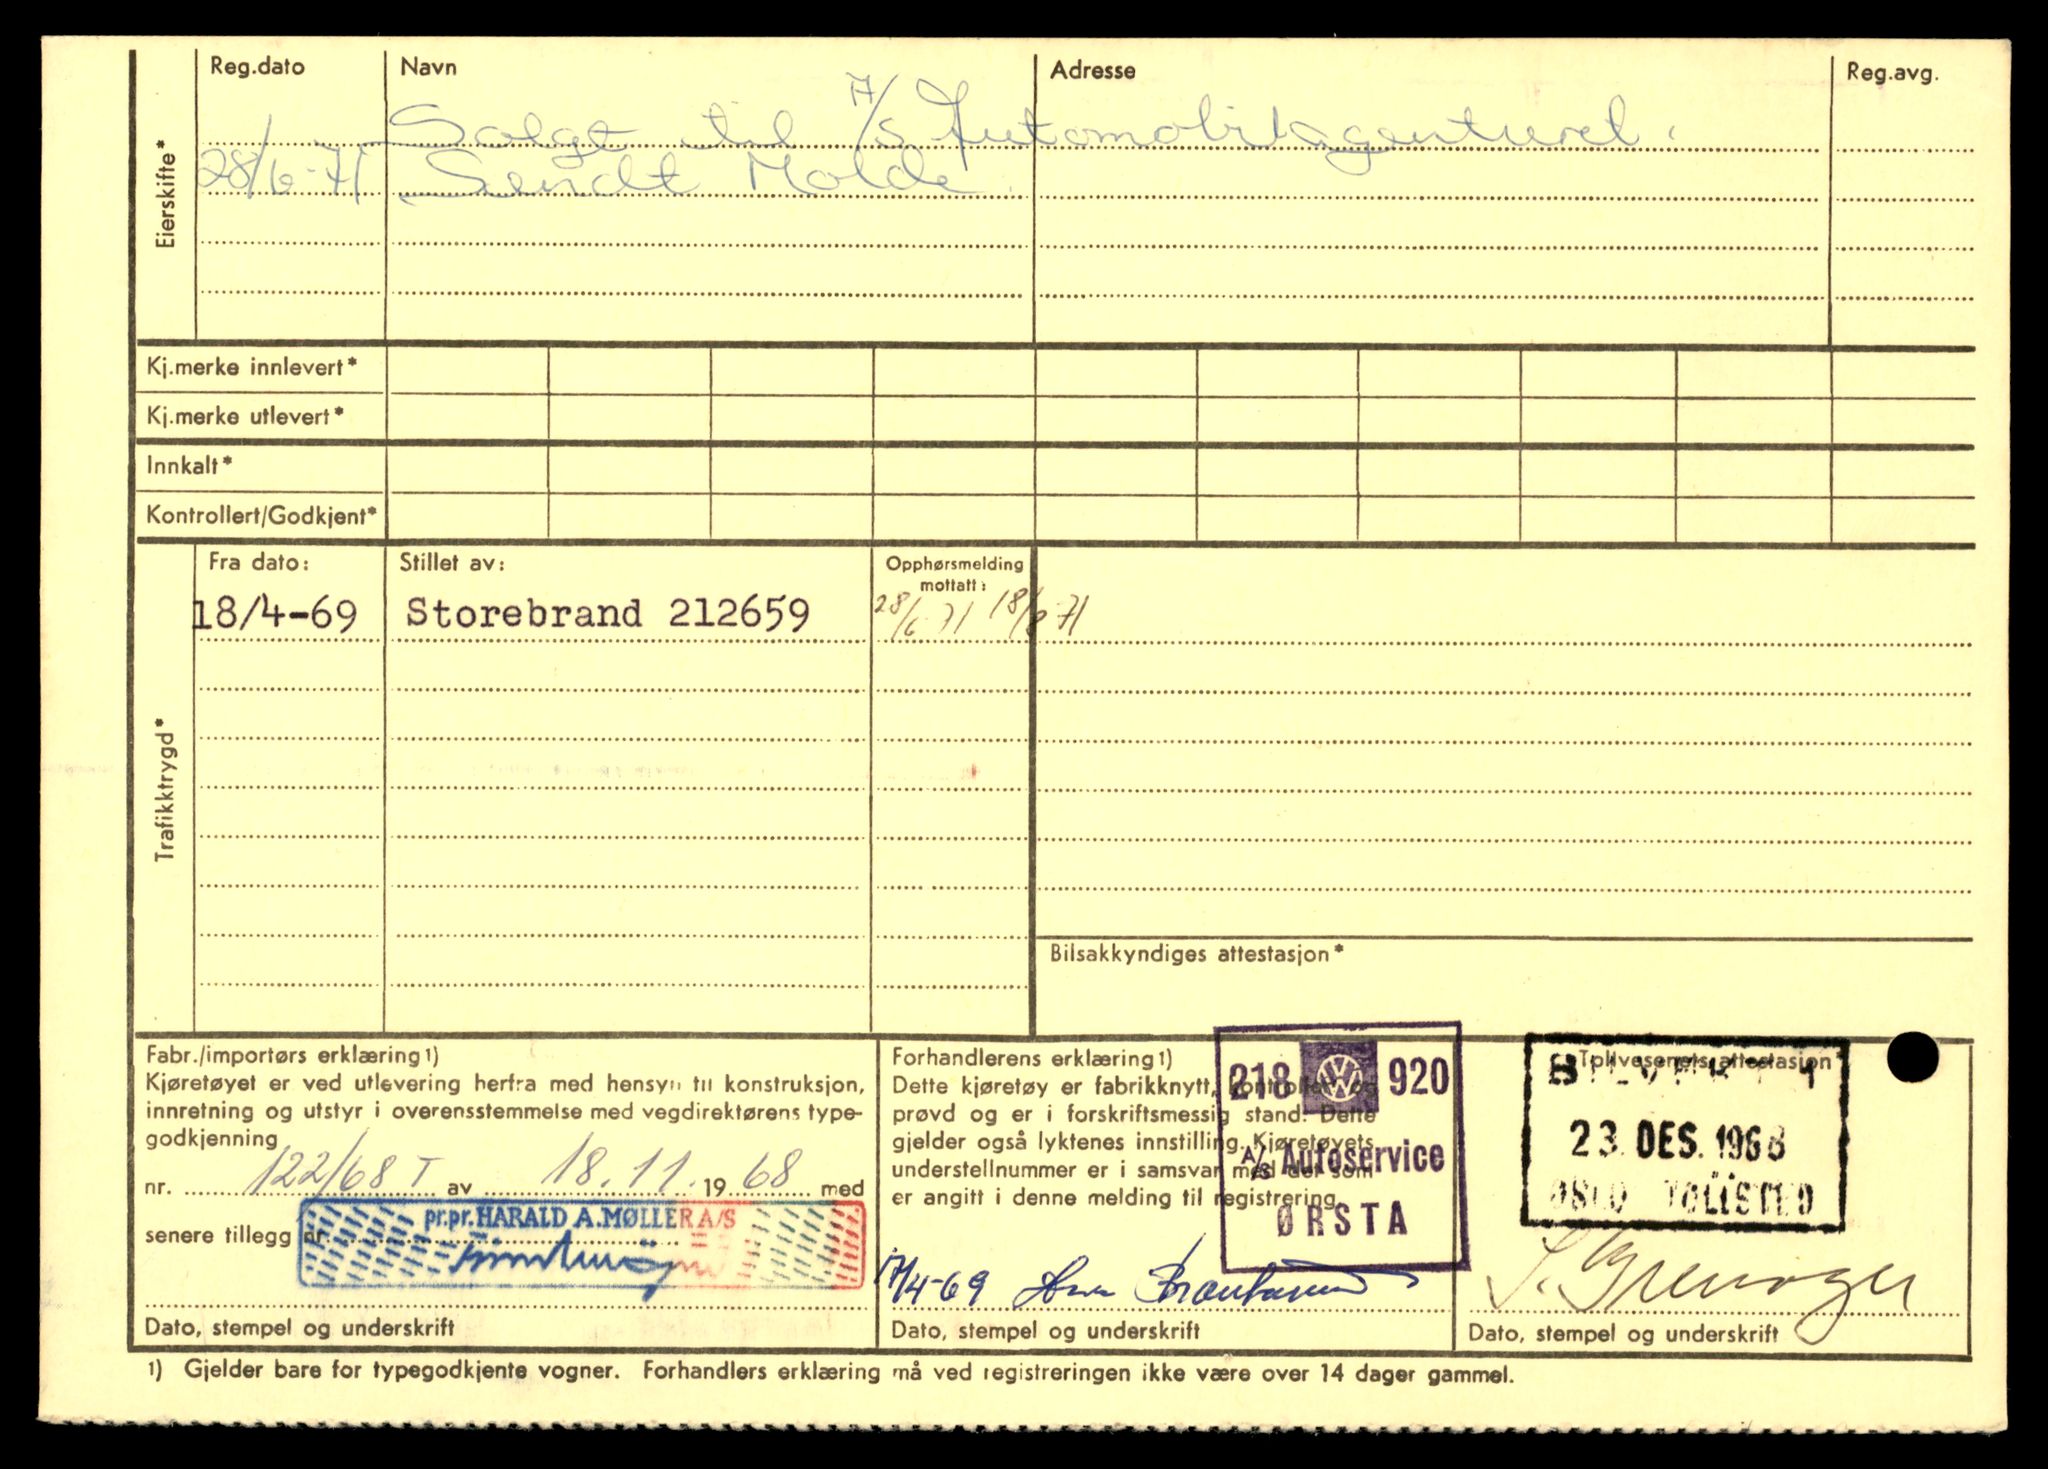 Reg.dato Navn Adresse Reg.avg.
Eierskifte*
Solgt til A/S Automobilagenturet.
28/6-71 Sendt Molde.
Kj.merke innlevert*
Kj.merke utlevert*
Innkalt*
Kontrollert/Godkjent*
Trafikktrygd*
Fra dato: Stillet av: Opphørsmelding mottatt:
18/4-69 Storebrand 212659 28/6-71 18/8-71
Bilsakkyndiges attestasjon*
Fabr./importørs erklæring1)
Kjøretøyet er ved utlevering herfra med hensyn til konstruksjon,
innretning og utstyr i overensstemmelse med vegdirektørens type-
godkjenning
nr. 122/68 T av 18.11. 1968 med
senere tillegg nr.
pr.pr. HARALD A. MØLLER A/S
Dato, stempel og underskrift
Forhandlerens erklæring1)
Dette kjøretøy er fabrikknytt, kontrollert og
prøvd og er i forskriftsmessig stand. Dette
gjelder også lyktenes innstilling. Kjøretøyets
understellnummer er i samsvar med det som
er angitt i denne melding til registrering.
218 VW 920
A/S Autoservice
ØRSTA
17/4-69
Dato, stempel og underskrift
Tollvesenets attestasjon*
1
23. DES. 1968
OSLO TOLLSTED
Dato, stempel og underskrift
1) Gjelder bare for typegodkjente vogner. Forhandlers erklæring må ved registreringen ikke være over 14 dager gammel.